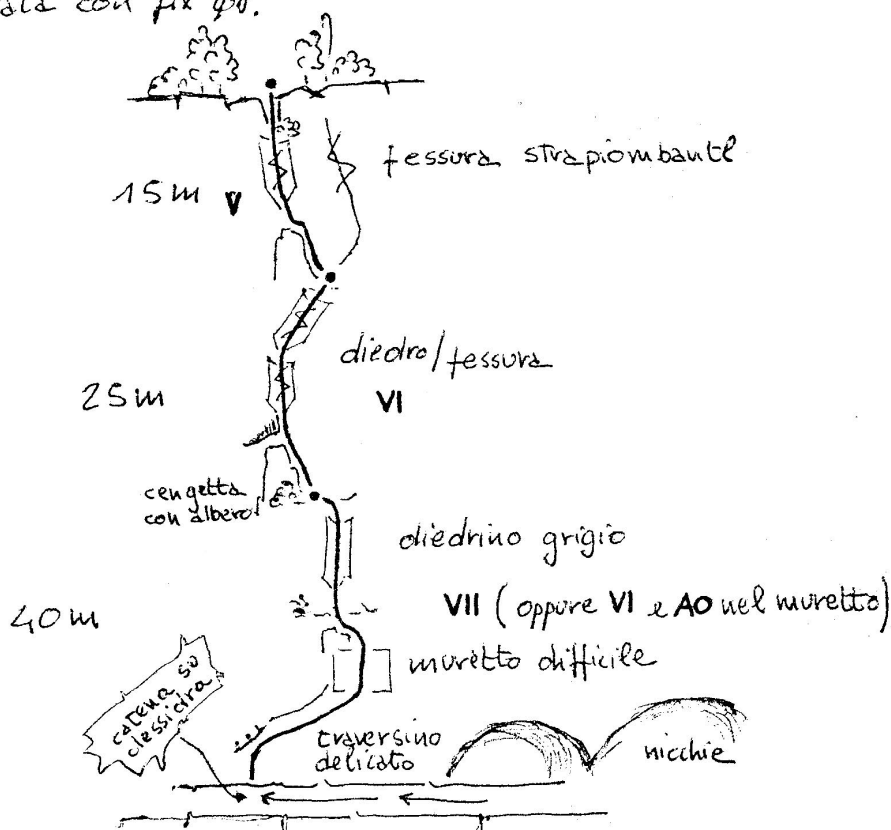 con fix
fessura strapiombante
15m V
diedro/fessura
25m
VI
cengetta
con albero
diedrino grigio
VII (oppure VI e A0 nel muretto)
40m
muretto difficile
catena su
clessidra
traversino
delicato
nicchie